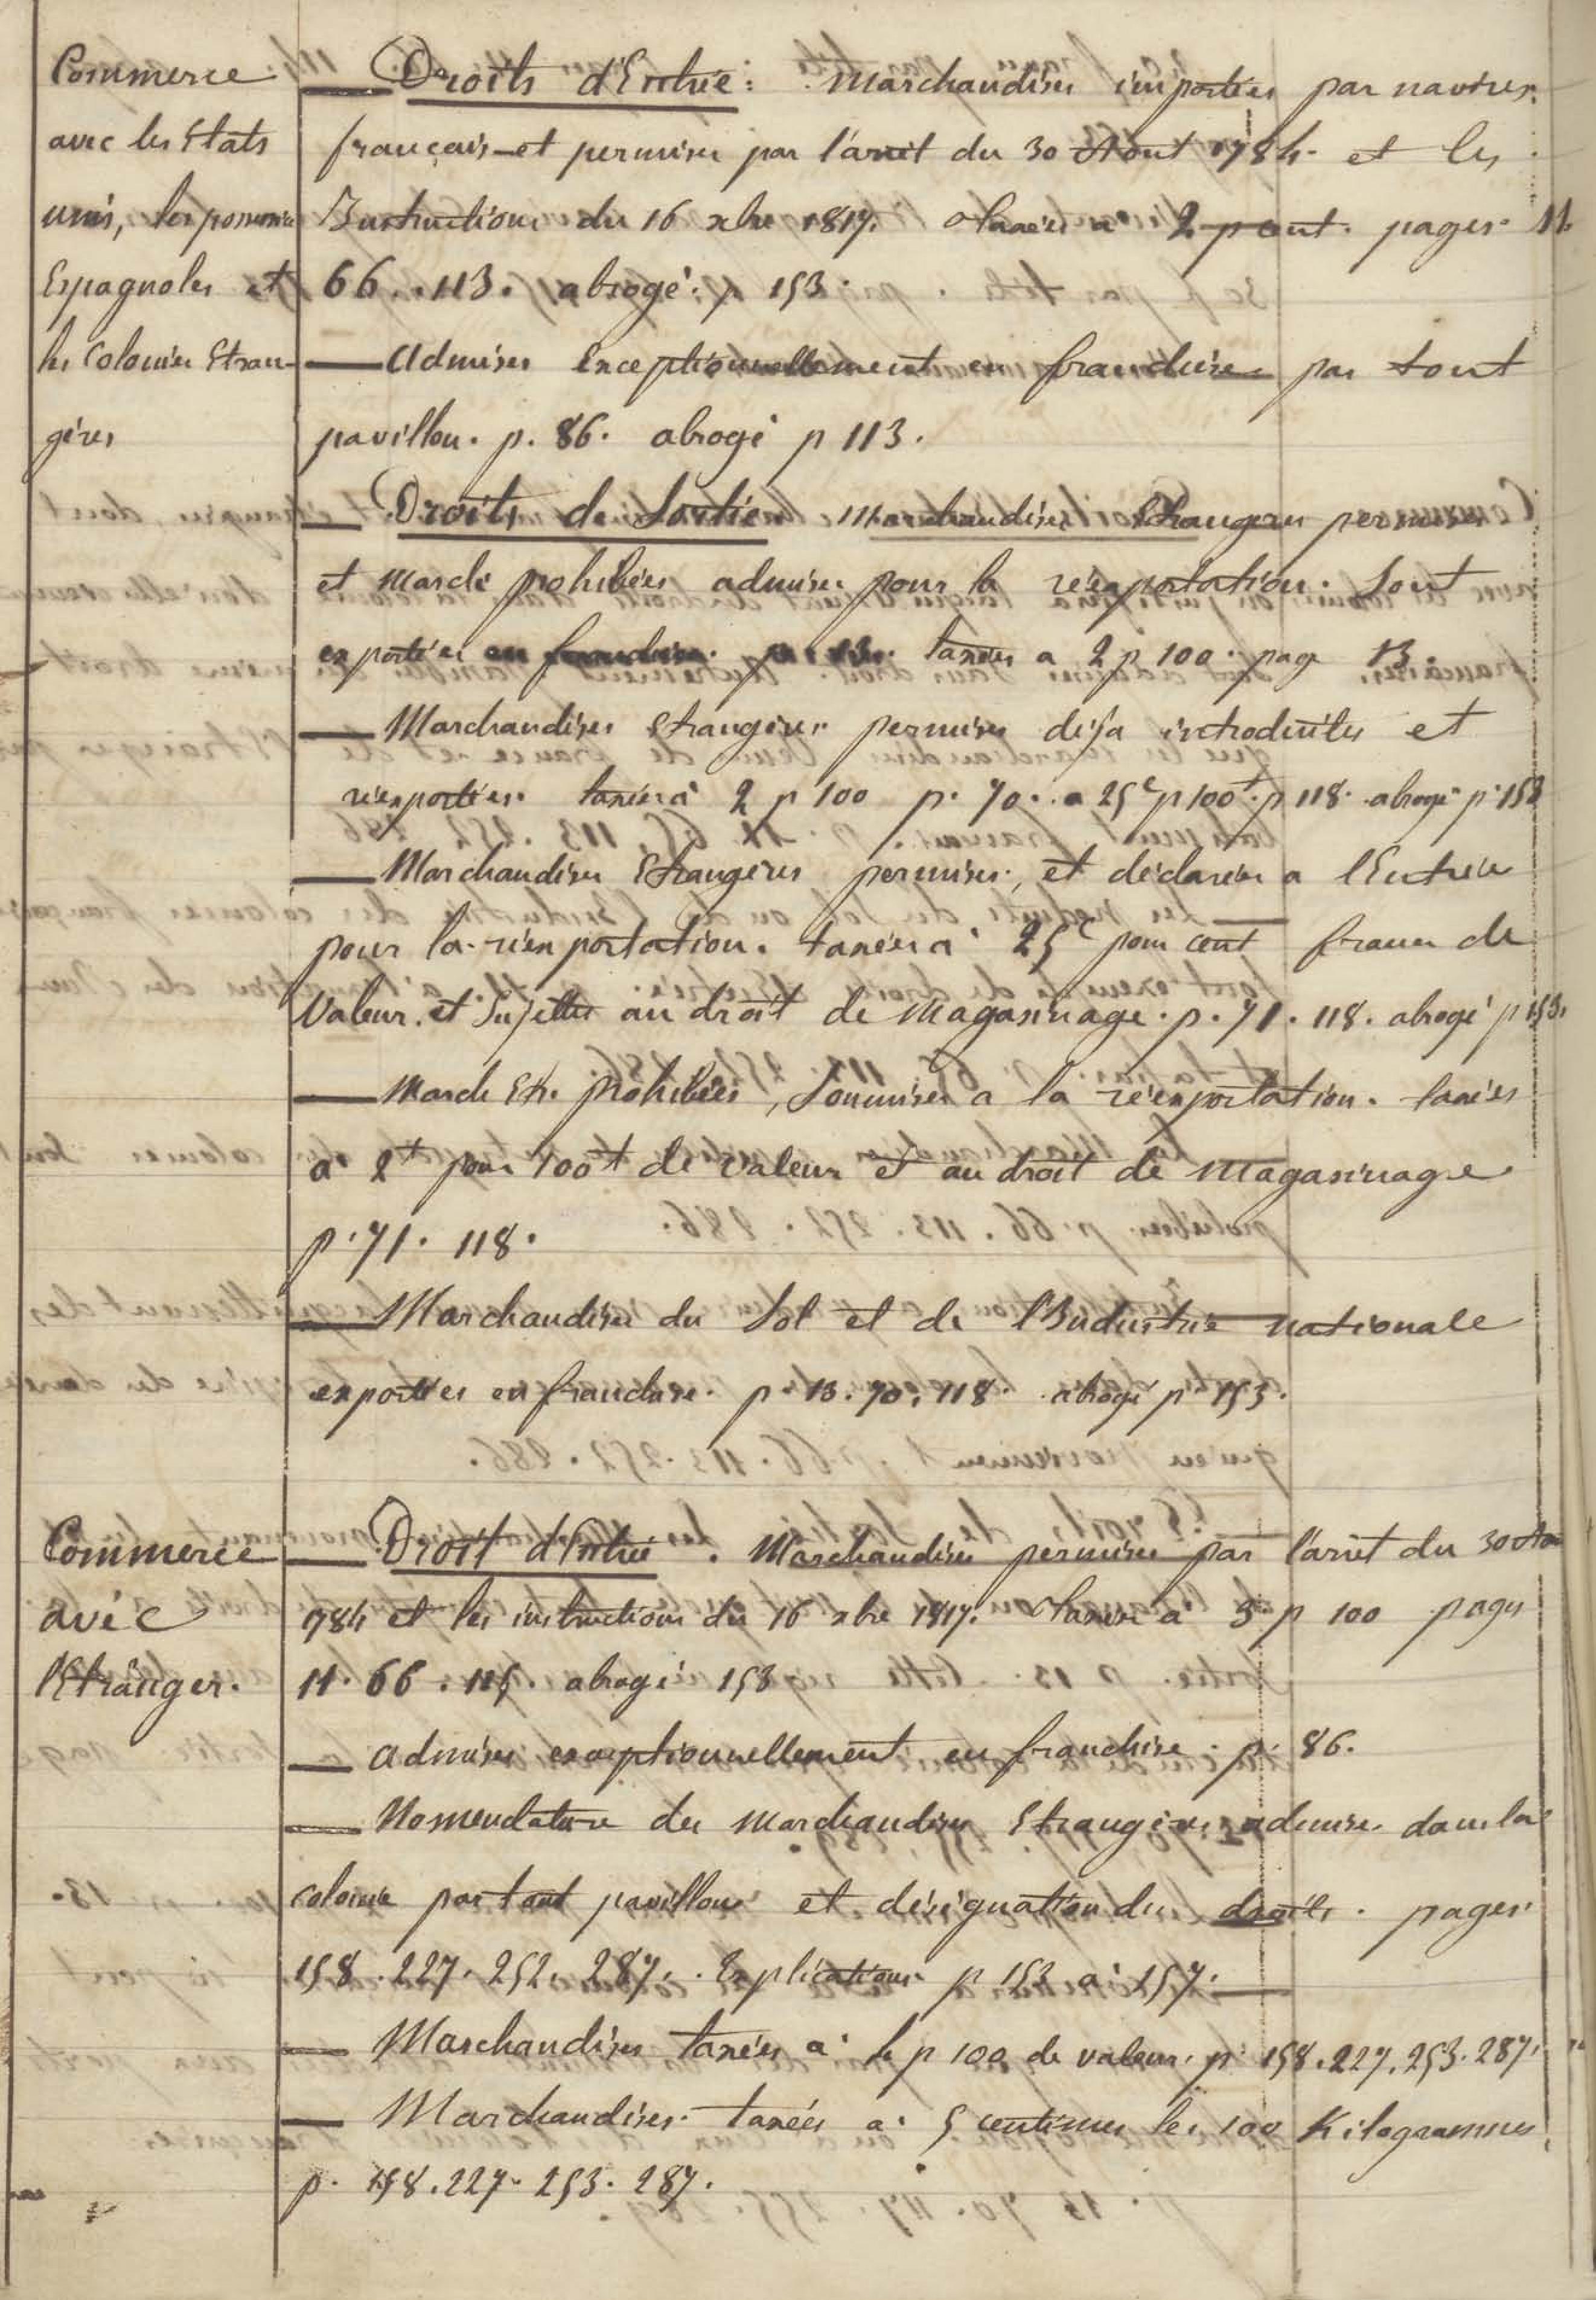 Commerce
avec les Etats
unis, les possessions
Espagnoles et
les Colonies Etran-
gères
— Droits d'Entrée: Marchandises importées par navires
français et permises par l'arrêt du 30 Aout 1784 et les
Instructions du 16 xbre 1817. taxées à 2 p cent. pages 11.
66. 113. abrogé. p 153.
— Admises Exceptionnellement en franchise par tout
pavillon. p. 86. abrogé p 113.
— Droits de Sortie Marchandises Etrangeres permises
et March prohibées admises pour la réexportation. Sont
exportées en franchise. p. 13. taxées a 2 p 100. page 13.
— Marchandises Etrangères permises déja introduites et
réexportées. taxées à 2 p 100 p. 70. a 25c p 100f. p 118. abrogé p. 153
— Marchandises Etrangères permises, et déclarées a l'Entrée
pour la réexportation. taxées à 25c pour cent francs de
Valeur. et Sujettes au droit de Magasinage. p. 71. 118. abrogé p 153.
— March Etr. prohibées, Soumises a la réexportation. taxées
a 2f pour 100f de valeur et au droit de magasinage
p. 71. 118.
— Marchandises du Sol et de l'Industrie nationale
exportées en franchise. p. 13. 70. 118. abrogé p 153.
Commerce
avec
l'Etranger.
— Droit d'Entrée. Marchandises permises par l'arrêt du 30 Aou
1784 et les instructions du 16 xbre 1817. taxées à 5 p 100 pages
11. 66. 115. abrogé 153
— admises exceptionnellement en franchise. p. 86.
— Nomenclature des marchandises Etrangères admises dans la
colonie par tout pavillon et désignation des droits. pages
158. 227. 252. 287. Explications p 153 à 157.
— Marchandises taxées à 4 p 100 de valeur. p 158. 227. 253. 287.
— Marchandises taxées a 5 centimes les 100 Kilogrammes,
p. 158. 227. 253. 287.